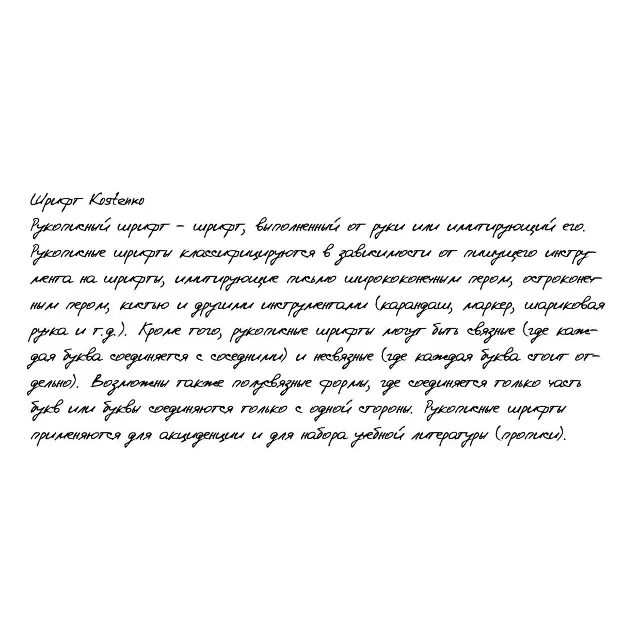 Шрифт Kostenko
Рукописный шрифт – шрифт, выполненный от руки или имитирующий его.
Рукописные шрифты классифицируются в зависимости от пишущего инстру-
мента на шрифты, имитирующие письмо ширококонечным пером, остроконеч-
ным пером, кистью и другими инструментами (карандаш, маркер, шариковая
ручка и т.д.). Кроме того, рукописные шрифты могут быть связные (где каж-
дая буква соединяется с соседними) и несвязные (где каждая буква стоит от-
дельно). Возможны также полусвязные формы, где соединяется только часть
букв или буквы соединяются только с одной стороны. Рукописные шрифты
применяются для акциденции и для набора учебной литературы (прописи).